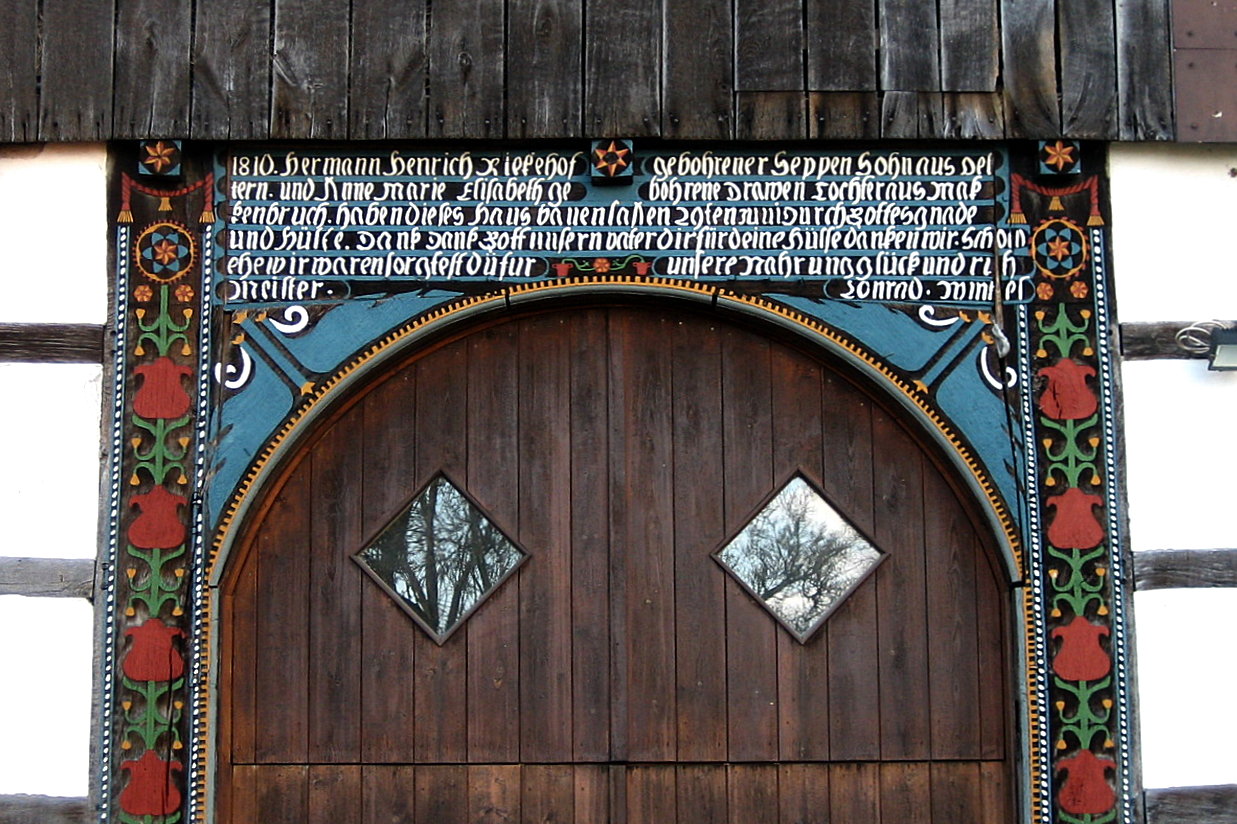 1810. Hermann Henrich gebohrener Seppen Sohn aus Oet
tern. und Anne Marie Elisabeth ge bohrene Drawen Tochter aus Mak
kenbruch. haben dieses haus bauen laßen 29ten Junii durch Gottes gnade
und hülfe. Dank, dank Gott unsern vater dir für deine hülfe danken wir, schon
ehe wir waren sorgtest du für unsere Nahrung glück und
Meister. Conrad. Winter